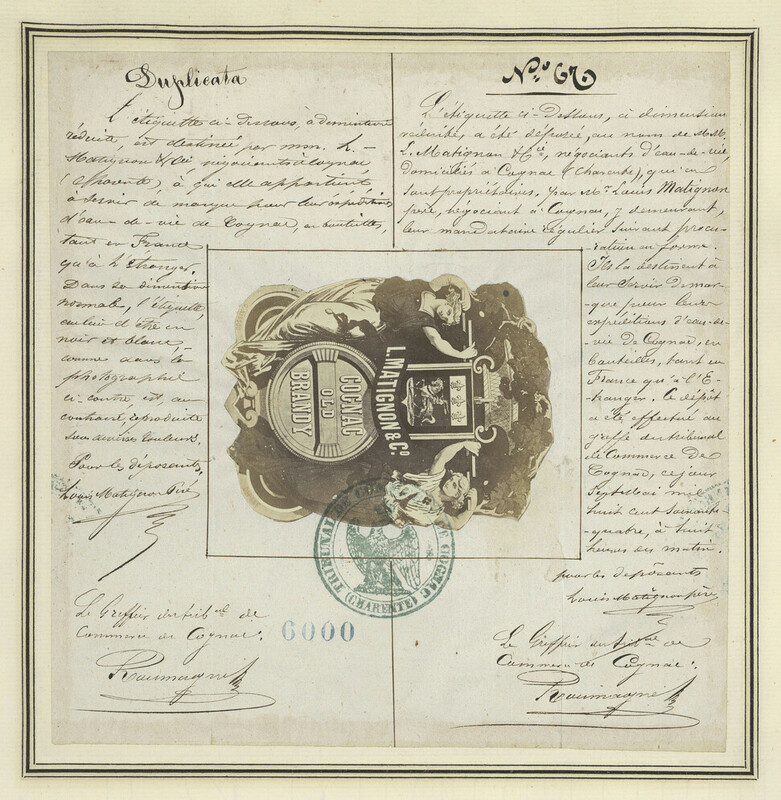 Duplicata
L'étiquette ci-dessous, à dimension
réduite, est destinée par mm. L.
Matignon & Cie négociants à Cognac,
(Charente), à qui elle appartient,
à servir de marque pour leurs expéditions
d'eau-de-vie de Cognac, en bouteilles,
tant en France
qu'à l'étranger.
Dans sa dimension
normale, l'étiquette,
au lieu d'être en
noir et blanc,
comme dans la
photographie
ci-contre, est, au
contraire, reproduite
sous diverses couleurs.
Pour les déposants,
Louis Matignon Père
Le Greffier du tribnal de
Commerce de Cognac:
Roumagne
6000
No 67.
L'étiquette ci-Dessous, à dimension
réduite, a été déposée, au nom de M.M.
L. Matignon & Cie, négociants d'eau-de-vie,
domiciliés à Cognac (Charente), qui en
sont propriétaires, par Mr Louis Matignon
père, négociant à Cognac, y demeurant,
leur mandataire régulier suivant procu-
-ration en forme.
Ils la destinent à
leur servir de mar-
-que pour leurs
expéditions d'eau-de-
-vie de Cognac, en
bouteilles, tant en
France qu'à l'É-
-tranger. Le dépôt
a été effectué au
greffe du tribunal
de Commerce de
Cognac, ce jour
Sept Mai mil
huit cent soixante-
-quatre, à huit
heures du matin.
pour les déposants
Louis Matignon père
Le Greffier du tribnal de
Commerce de Cognac:
Roumagne
L. MATIGNON & Co.
COGNAC
OLD
BRANDY
TRIBUNAL DE COMMERCE DE COGNAC
(CHARENTE)